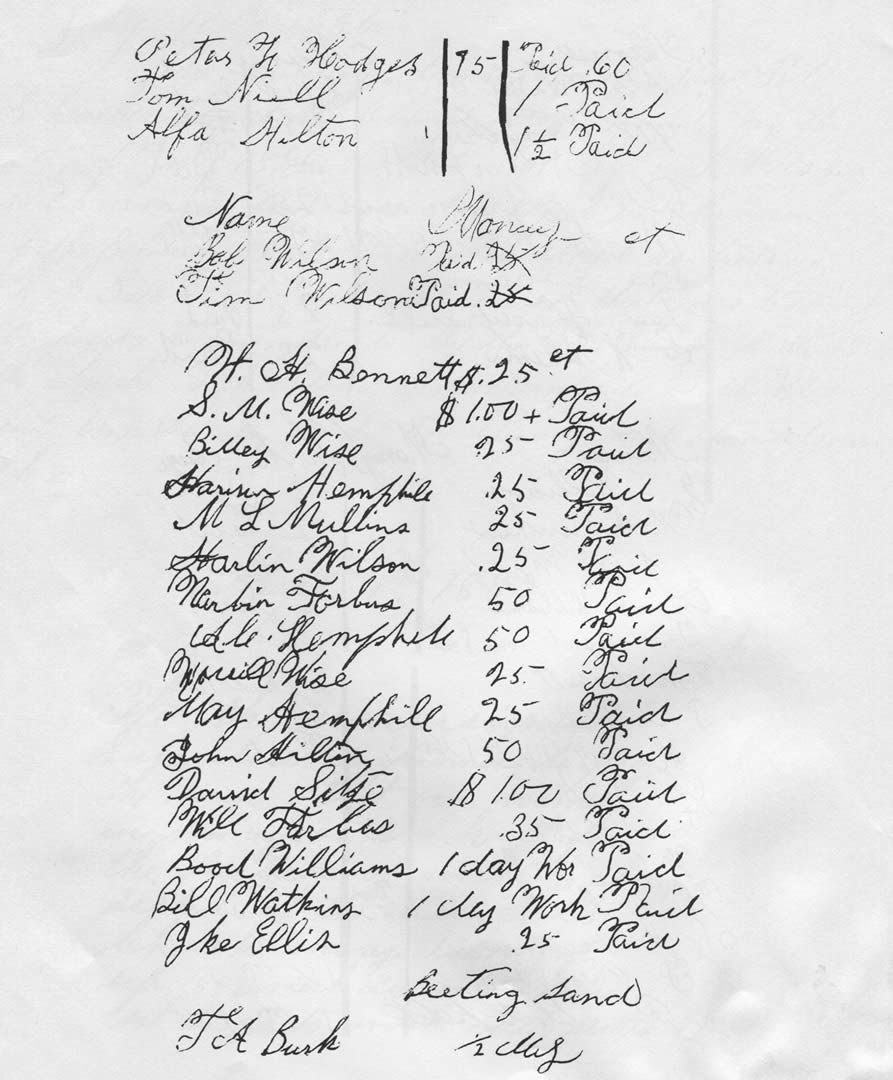 Petar H Hodges 75 Paid .60
Tom Niell 1 - Paid
Alfa Hilton 1 1/2 Paid
Name Money
Bob Wilson Paid .25 et
Tim Wilson Paid .25
H. H. Bennett $.25 et
S. M. Wise $1.00 + Paid
Billey Wise .25 Paid
Harison Hemphile .25 Paid
M L Mullins 25 Paid
Harlin Wilson .25 Paid
Narbin Forbus 50 Paid
Hemphill 50 Paid
Wise 25 Paid
May Hemphill 25 Paid
John Hilton 50 Paid
David Sitze $1.00 Paid
Will Forbus .35 Paid
Bood Williams 1 day Wor Paid
Bill Watkins 1 day Work Paid
Ike Ellis .25 Paid
Beeting sand
T A Burk 1/2